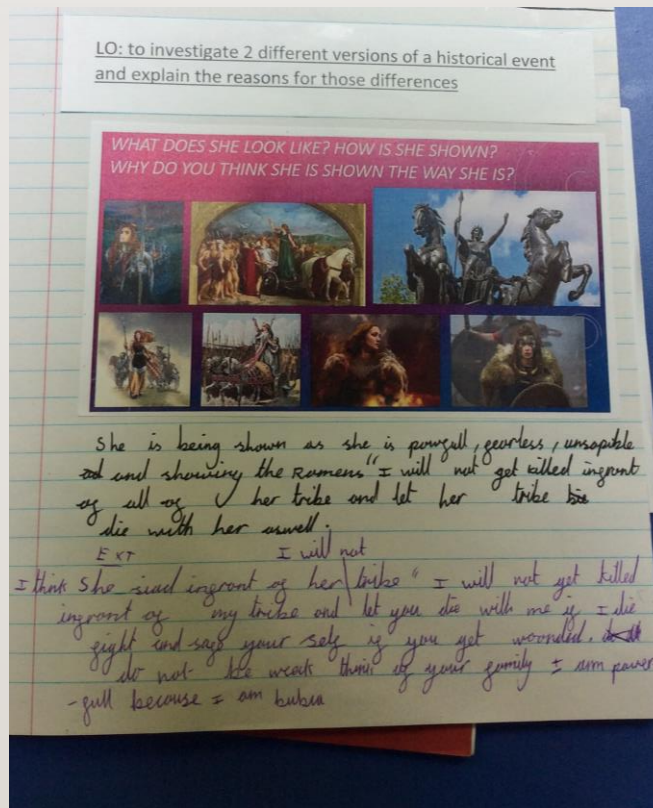 LO: to investigate 2 different versions of a historical event
and explain the reasons for those differences
WHAT DOES SHE LOOK LIKE? HOW IS SHE SHOWN?
WHY DO YOU THINK SHE IS SHOWN THE WAY SHE IS?
She is being shown as she is powgull, gearless, unsopible
and showing the Romens "I will not get killed ingront
og all og her tribe and let her tribe
die with her aswell.
EXT I will not
I think She siad ingront og her tribe "I will not get killed
ingront og my tribe and let you die with me ig I die
gight and your selg ig you get woonded.
do not be weak think og your gamily I am power
-gull because I am